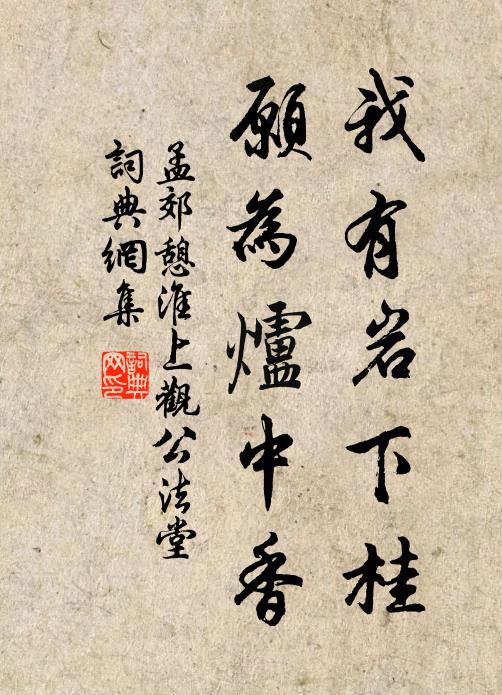 我有岩下桂
願為爐中香
孟郊憩淮上觀公法堂
詞典網集
詞典网印